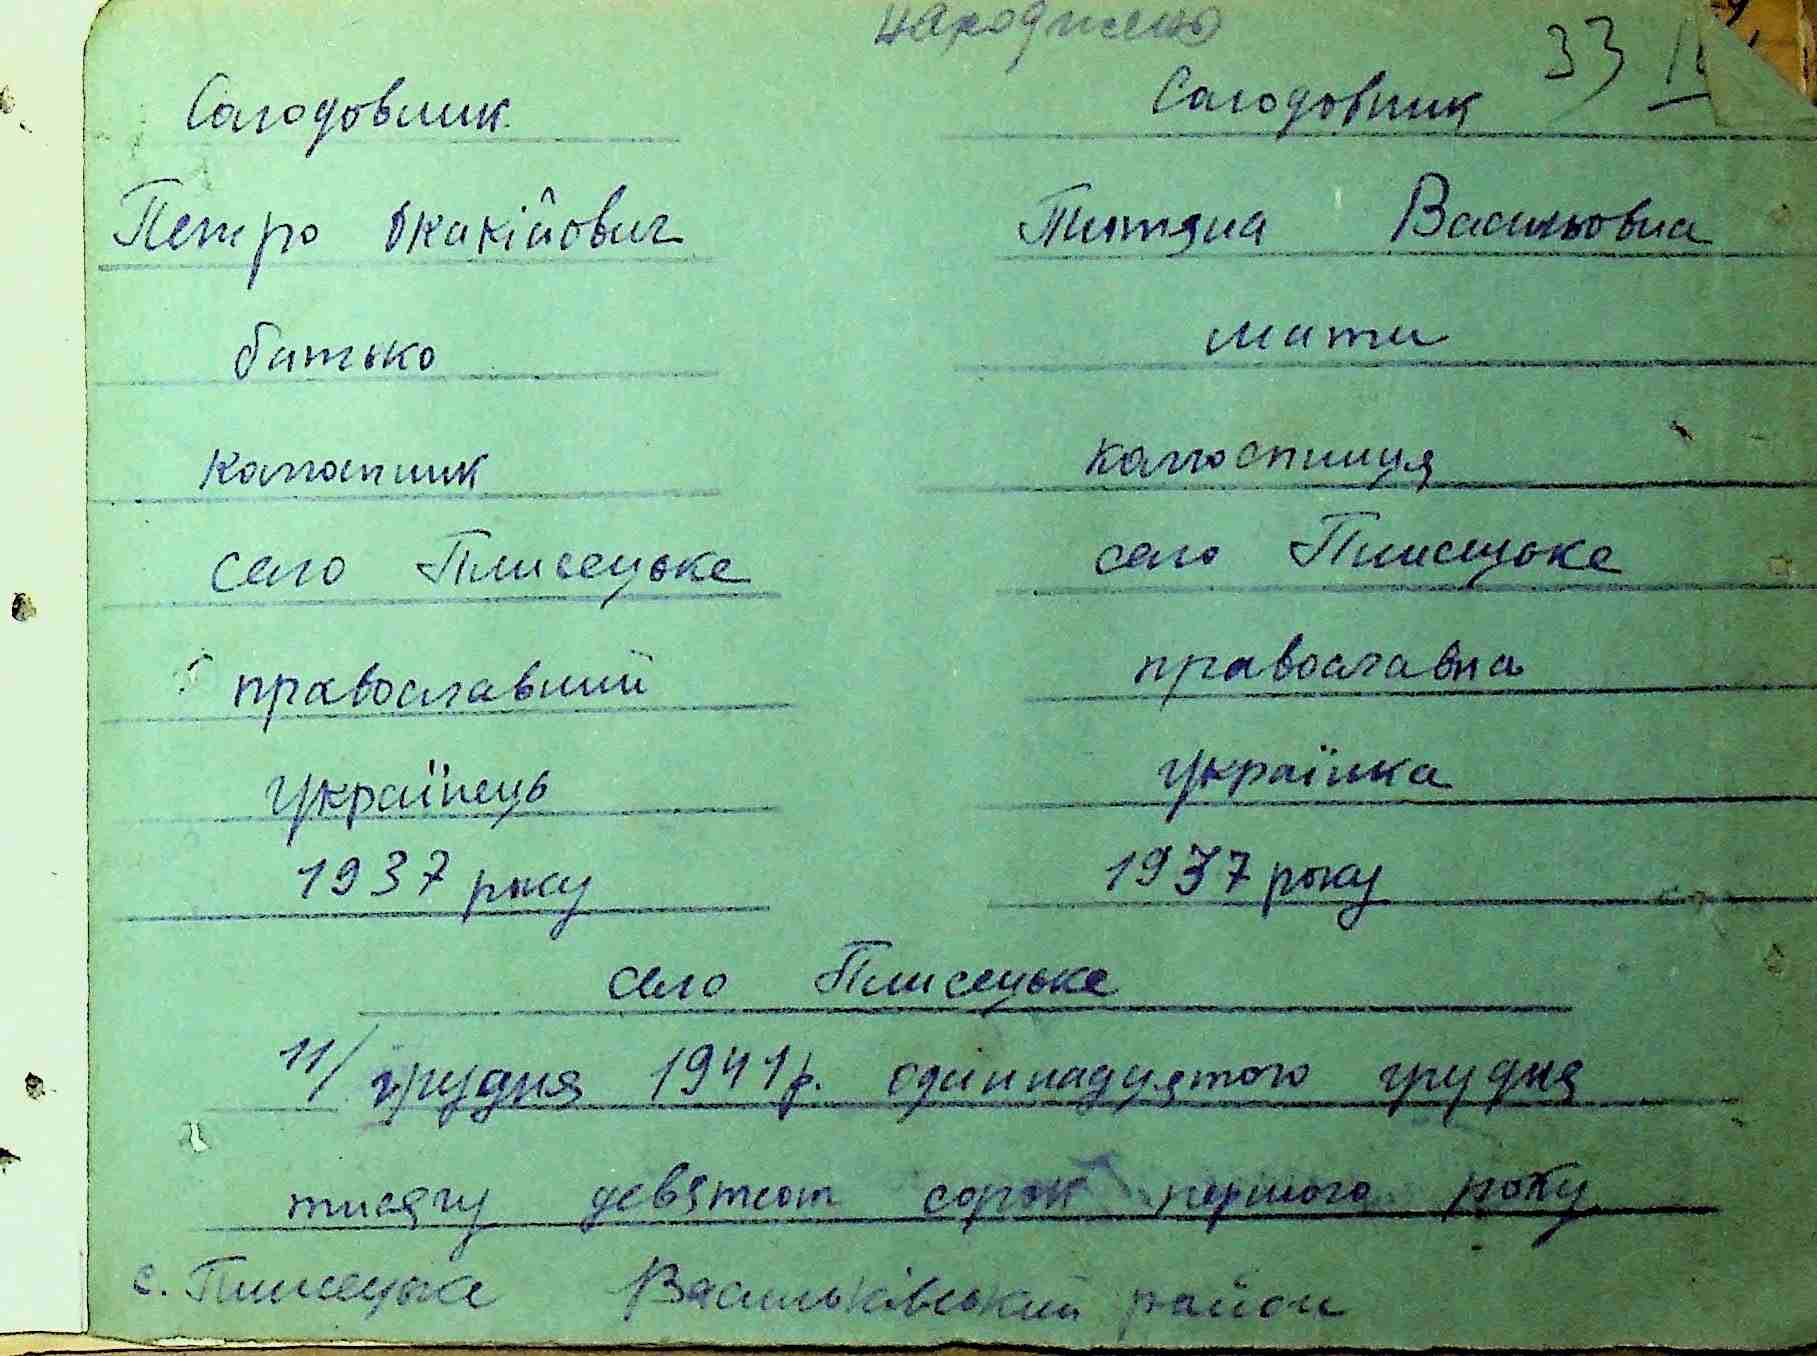 народжено
33
Солодовник Солодовник
Петро Окакійович Титяна Васильовна
батько мати
колгоспник колгоспниця
село Плисецьке село Плисецьке
православний православна
українець українка
1937 року 1937 року
село Плисецьке
11/ грудня 1941 р. одіннадцятого грудня
тисячу девятсот сорок першого року
с. Плисецьке Васильківський район